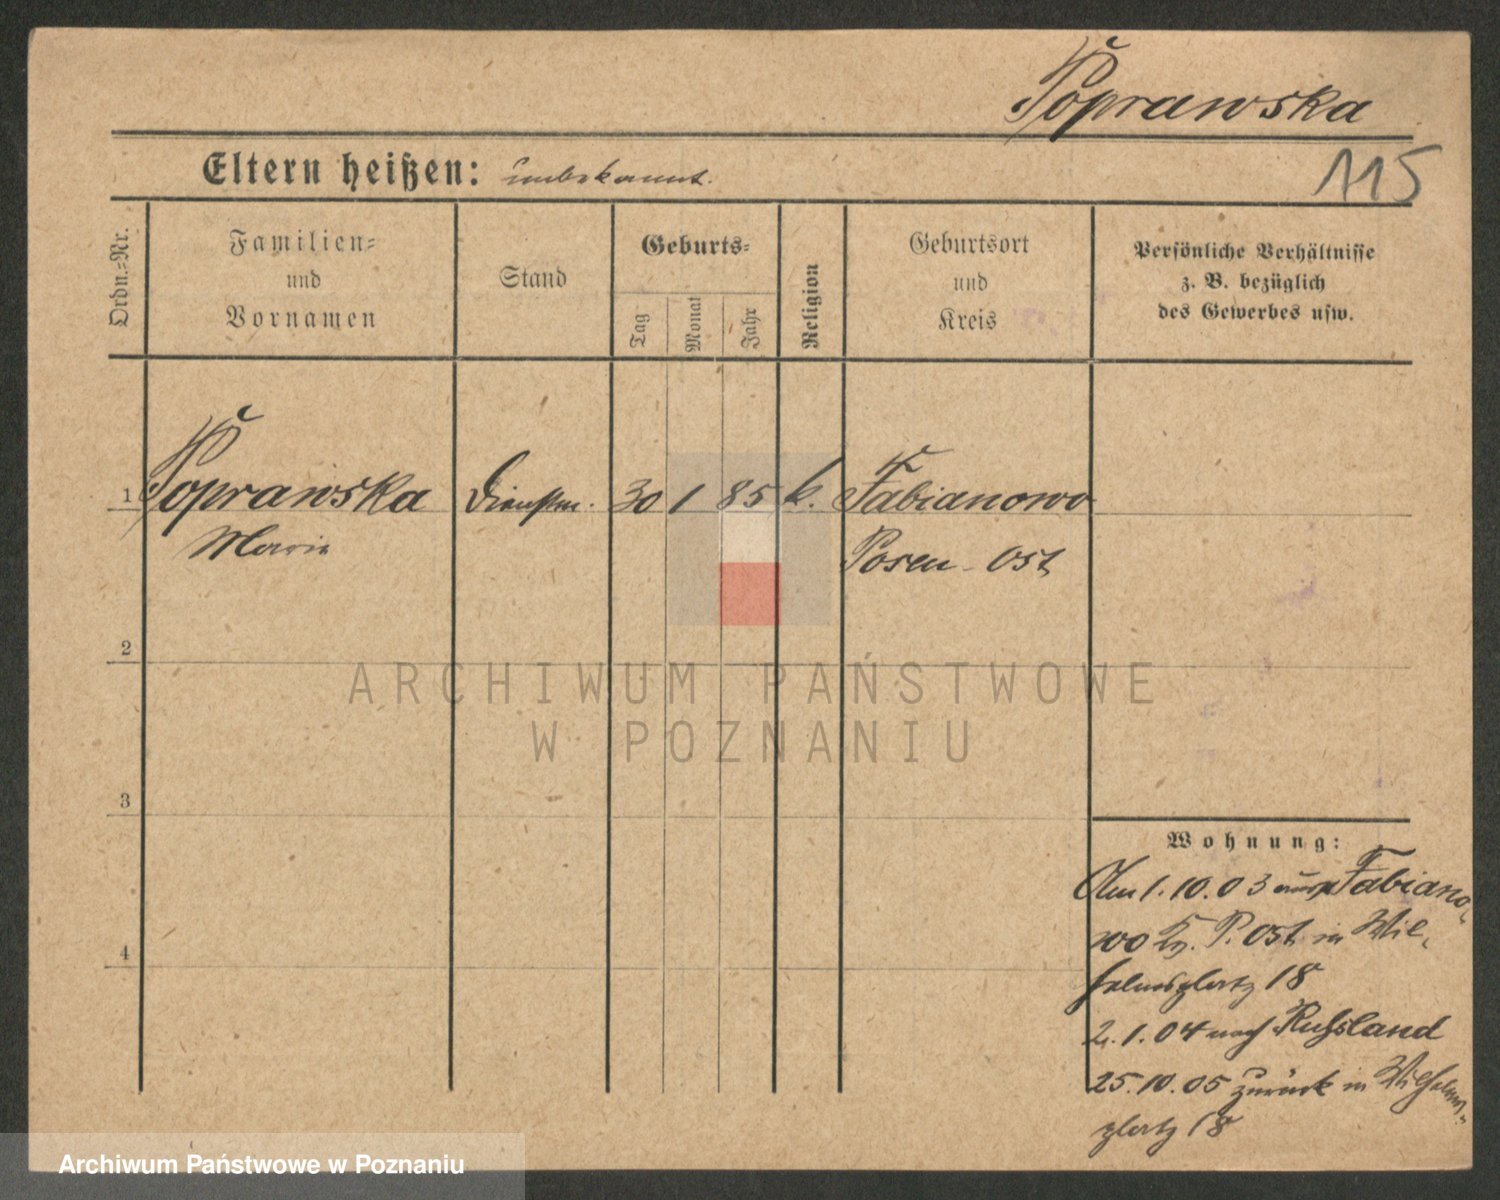 Poprawska
Eltern heißen: unbekannt.
115
Ordn.=Nr.
Familien=
und
Vornamen
Stand
Geburts=
Tag
Monat
Jahr
Religion
Geburtsort
und
Kreis
Persönliche Verhältnisse
z. B. bezüglich
des Gewerbes usw.
1 Poprawska Dienstm. 30 1 85 k. Fabianowo
Marie Posen-Ost
2
3
4
Wohnung:
Am 1. 10. 03 aus Fabiano-
wo Kr. P. Ost in Wil-
helmsplatz 18
2. 1. 04 nach Russland
25. 10. 05 zurück in Wilhelms-
platz 18
ARCHIWUM PAŃSTWOWE
W POZNANIU
Archiwum Państwowe w Poznaniu